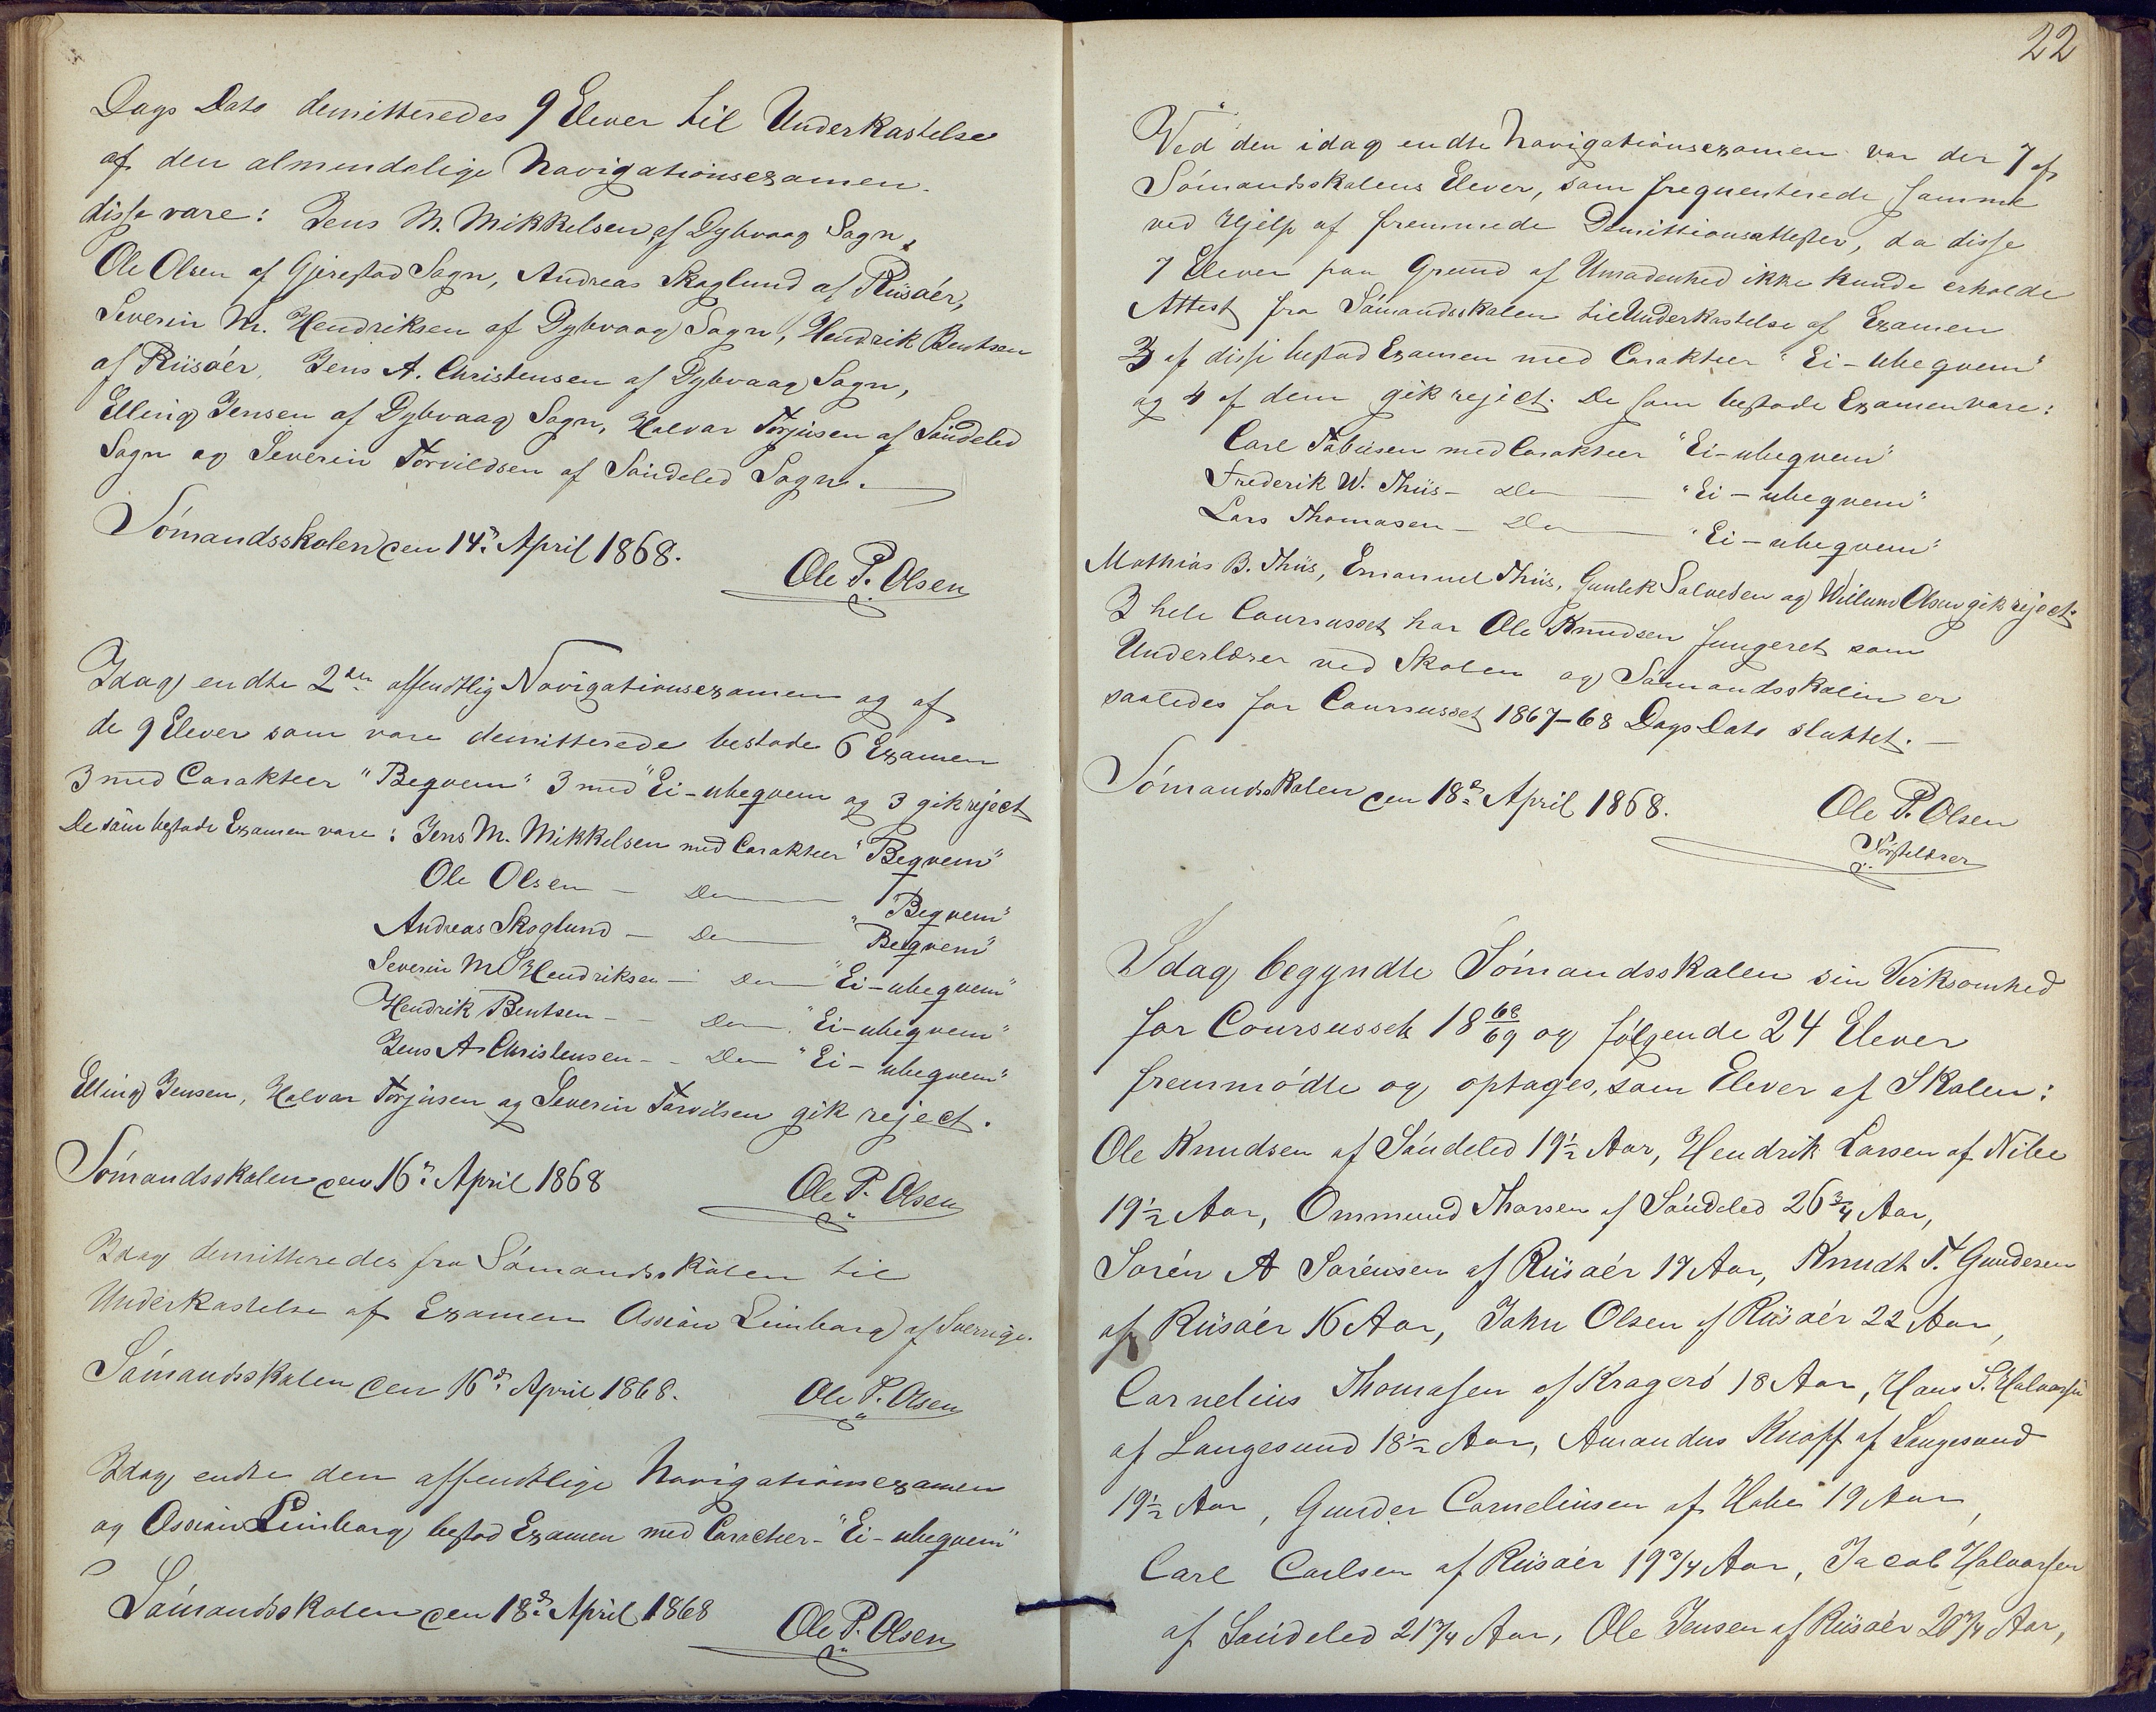 Dags Dato demitteredes 9 Elever til Underkastelse
af den almindelige Navigationsexamen.
disse vare: Jens M. Mikkelsen af Dybvaag Sogn,
Ole Olsen af Gjerestad Sogn, Andreas Skoglund af Riisöer,
Severin M. Hendriksen af Dybvaag Sogn, Hendrik Bentsen
af Riisöer, Jens A. Christensen af Dybvaag Sogn,
Elling Jensen af Dybvaag Sogn, Halvor Torjusen af Söndeled
Sogn og Severin Torvildsen af Söndeled Sogn.
Sömandsskolen den 14de April 1868.
Ole P. Olsen
Idag endte 2den offentlig Navigationsexamen og af
de 9 Elever som vare demitterede bestode 6 Examen
3 med Carakteer "Beqvem" 3 med "Ei-ubeqvem og 3 gik reject
De som bestode Examen vare: Jens M. Mikkelsen med Carakteer "Beqvem"
Ole Olsen – Do — "Beqvem"
Andreas Skoglund – Do — "Beqvem"
Severin M. Hendriksen – Do — "Ei-ubeqvem"
Hendrik Bentsen – Do – "Ei-ubeqvem"
Jens A Christensen – Do "Ei-ubeqvem"
Elling Jensen, Halvor Torjusen og Severin Torvilsen gik reject.
Sömandsskolen den 16de April 1868
Ole P. Olsen
Idag demitteredes fra Sömandsskolen til
Underkastelse af Examen Ossian Limborg af Sverrige.
Sömandsskolen den 16de April 1868.
Ole P. Olsen
Idag endte den offentlige Navigationsexamen
og Ossian Limborg bestod Examen med Caracteer - "Ei-ubeqvem"
Sömandsskolen den 18de April 1868
Ole P. Olsen
22
Ved den idag endte Navigationsexamen var der 7 af
Sömandsskolens Elever, som frequenterede samme
ved Hjelp af fremmede Dimittionsattester, da disse
7 Elever paa Grund af Umodenhed ikke kunde erholde
Attest fra Sömandsskolen til Underkastelse af Examen
3 af disse bestod Examen med Carakteer "Ei-ubeqvem"
og 4 af dem gik reject. De som bestode Examen vare:
Carl Tobiesen med Carakteer "Ei-ubeqvem"
Frederik W. Thiis – Do — "Ei-ubeqvem"
Lars Thomasen – Do — "Ei-ubeqvem"
Mathias B. Thiis, Emanuel Thiis, Gunlek Salvesen og Willum Olsen gik reject.
I hele Coursusset har Ole Knudsen fungeret som
Underlærer ved Skolen og Sömandsskolen er
saaledes for Coursusset 1867–68 Dags Dato sluttet. –
Sömandsskolen den 18de April 1868.
Ole P. Olsen
Förstelærer
Idag begyndte Sömandsskolen sin Virksomhed
for Coursusset 18 68/69 og fölgende 24 Elever
fremmödte og optages, som Elever af Skolen:
Ole Knudsen af Söndeled 19½ Aar, Hendrik Larsen af Nibe
19½ Aar, Ommund Thorsen af Söndeled 26¾ Aar,
Sören A Sörensen af Riisöer 17 Aar, Knudt T. Gundersen
af Riisöer 16 Aar, John Olsen af Riisöer 22 Aar,
Cornelius Thomasen af Kragerö 18 Aar, Hans S. Halvorsen
af Langesund 18½ Aar, Amandus Knoff af Langesund
19½ Aar, Gunder Corneliusen af Holte 19 Aar,
Carl Carlsen af Riisöer 19¾ Aar, Jacob Halvorsen
af Söndeled 21¾ Aar, Ole Jensen af Riisöer 20¾ Aar,